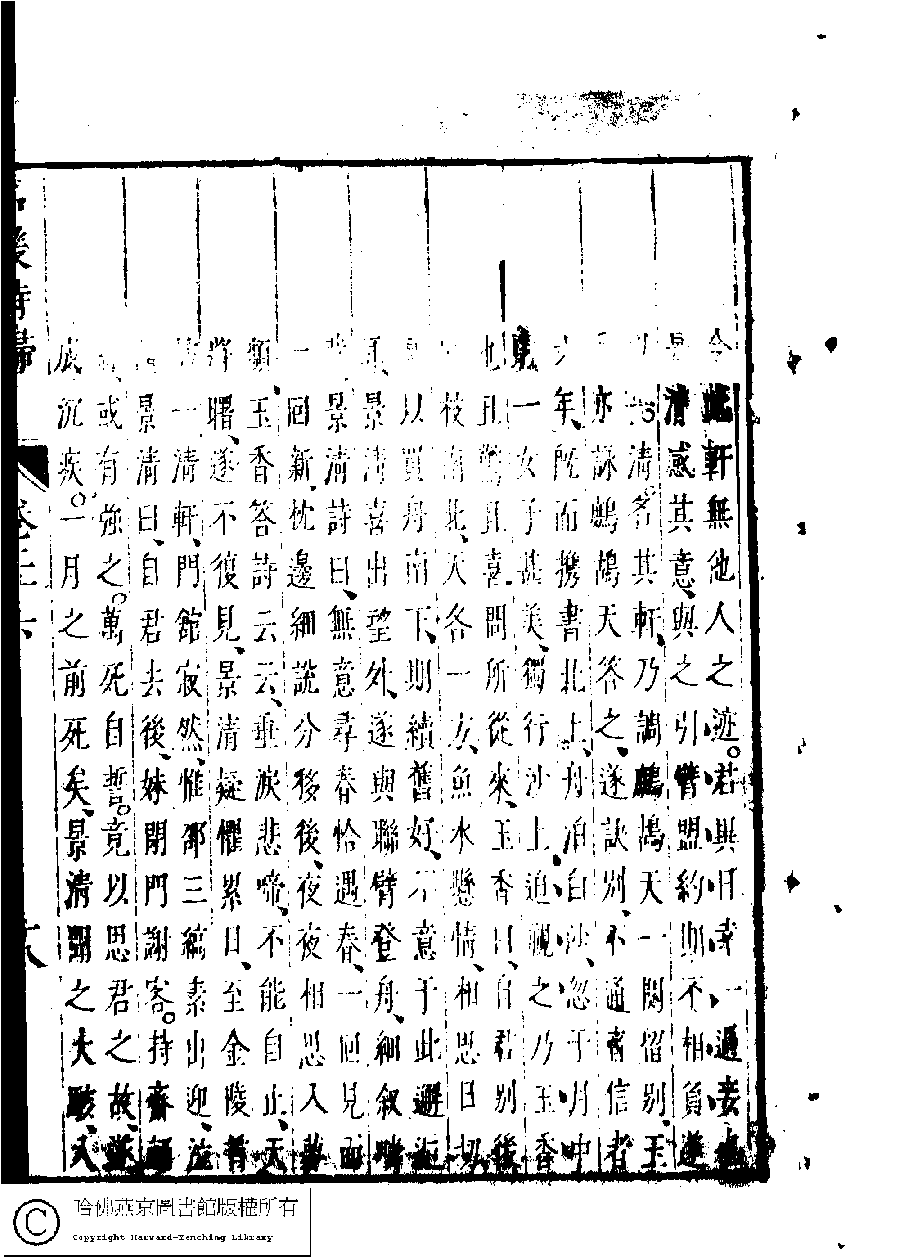 今此軒無他人之迹。君與日幸一過妾也
景清感其意、與之引臂盟約、期不相負、遂
以一清名其軒、乃調鷓鴣天一闋留別、玉
亦詠鷓鴣天答之、遂訣別、不通音信者
六年、既而攜書北上、舟泊白沙、忽于月中
見一女子甚美、獨行沙上、迫視之乃玉香
也、且驚且喜、問所從來、玉香曰、自君別後
枝南北、天各一方、魚水懸情、相思日切
以買舟南下、期續舊好、不意于此邂逅
耳、景清喜出望外、遂與聯臂登舟、細叙
景清詩曰、無意尋春恰遇春、一回見面
一回新、枕邊細說分移後、夜夜相思入夢
頻、玉香答詩云云、垂淚悲啼、不能自止、天
將曙、遂不復見、景清疑懼累日、至金陵首
訪一清軒、門館寂然、惟邵三縞素出迎、泣
景清曰、自君去後、妹閉門謝客。持齋
或有強之。萬死自誓。竟以思君之故、遂
成沉疾。一月之前死矣、景清聞之大駭、入
名媛詩歸
卷二十六
八
哈佛燕京圖書館版權所有
Copyright Harvard-Yenching Library